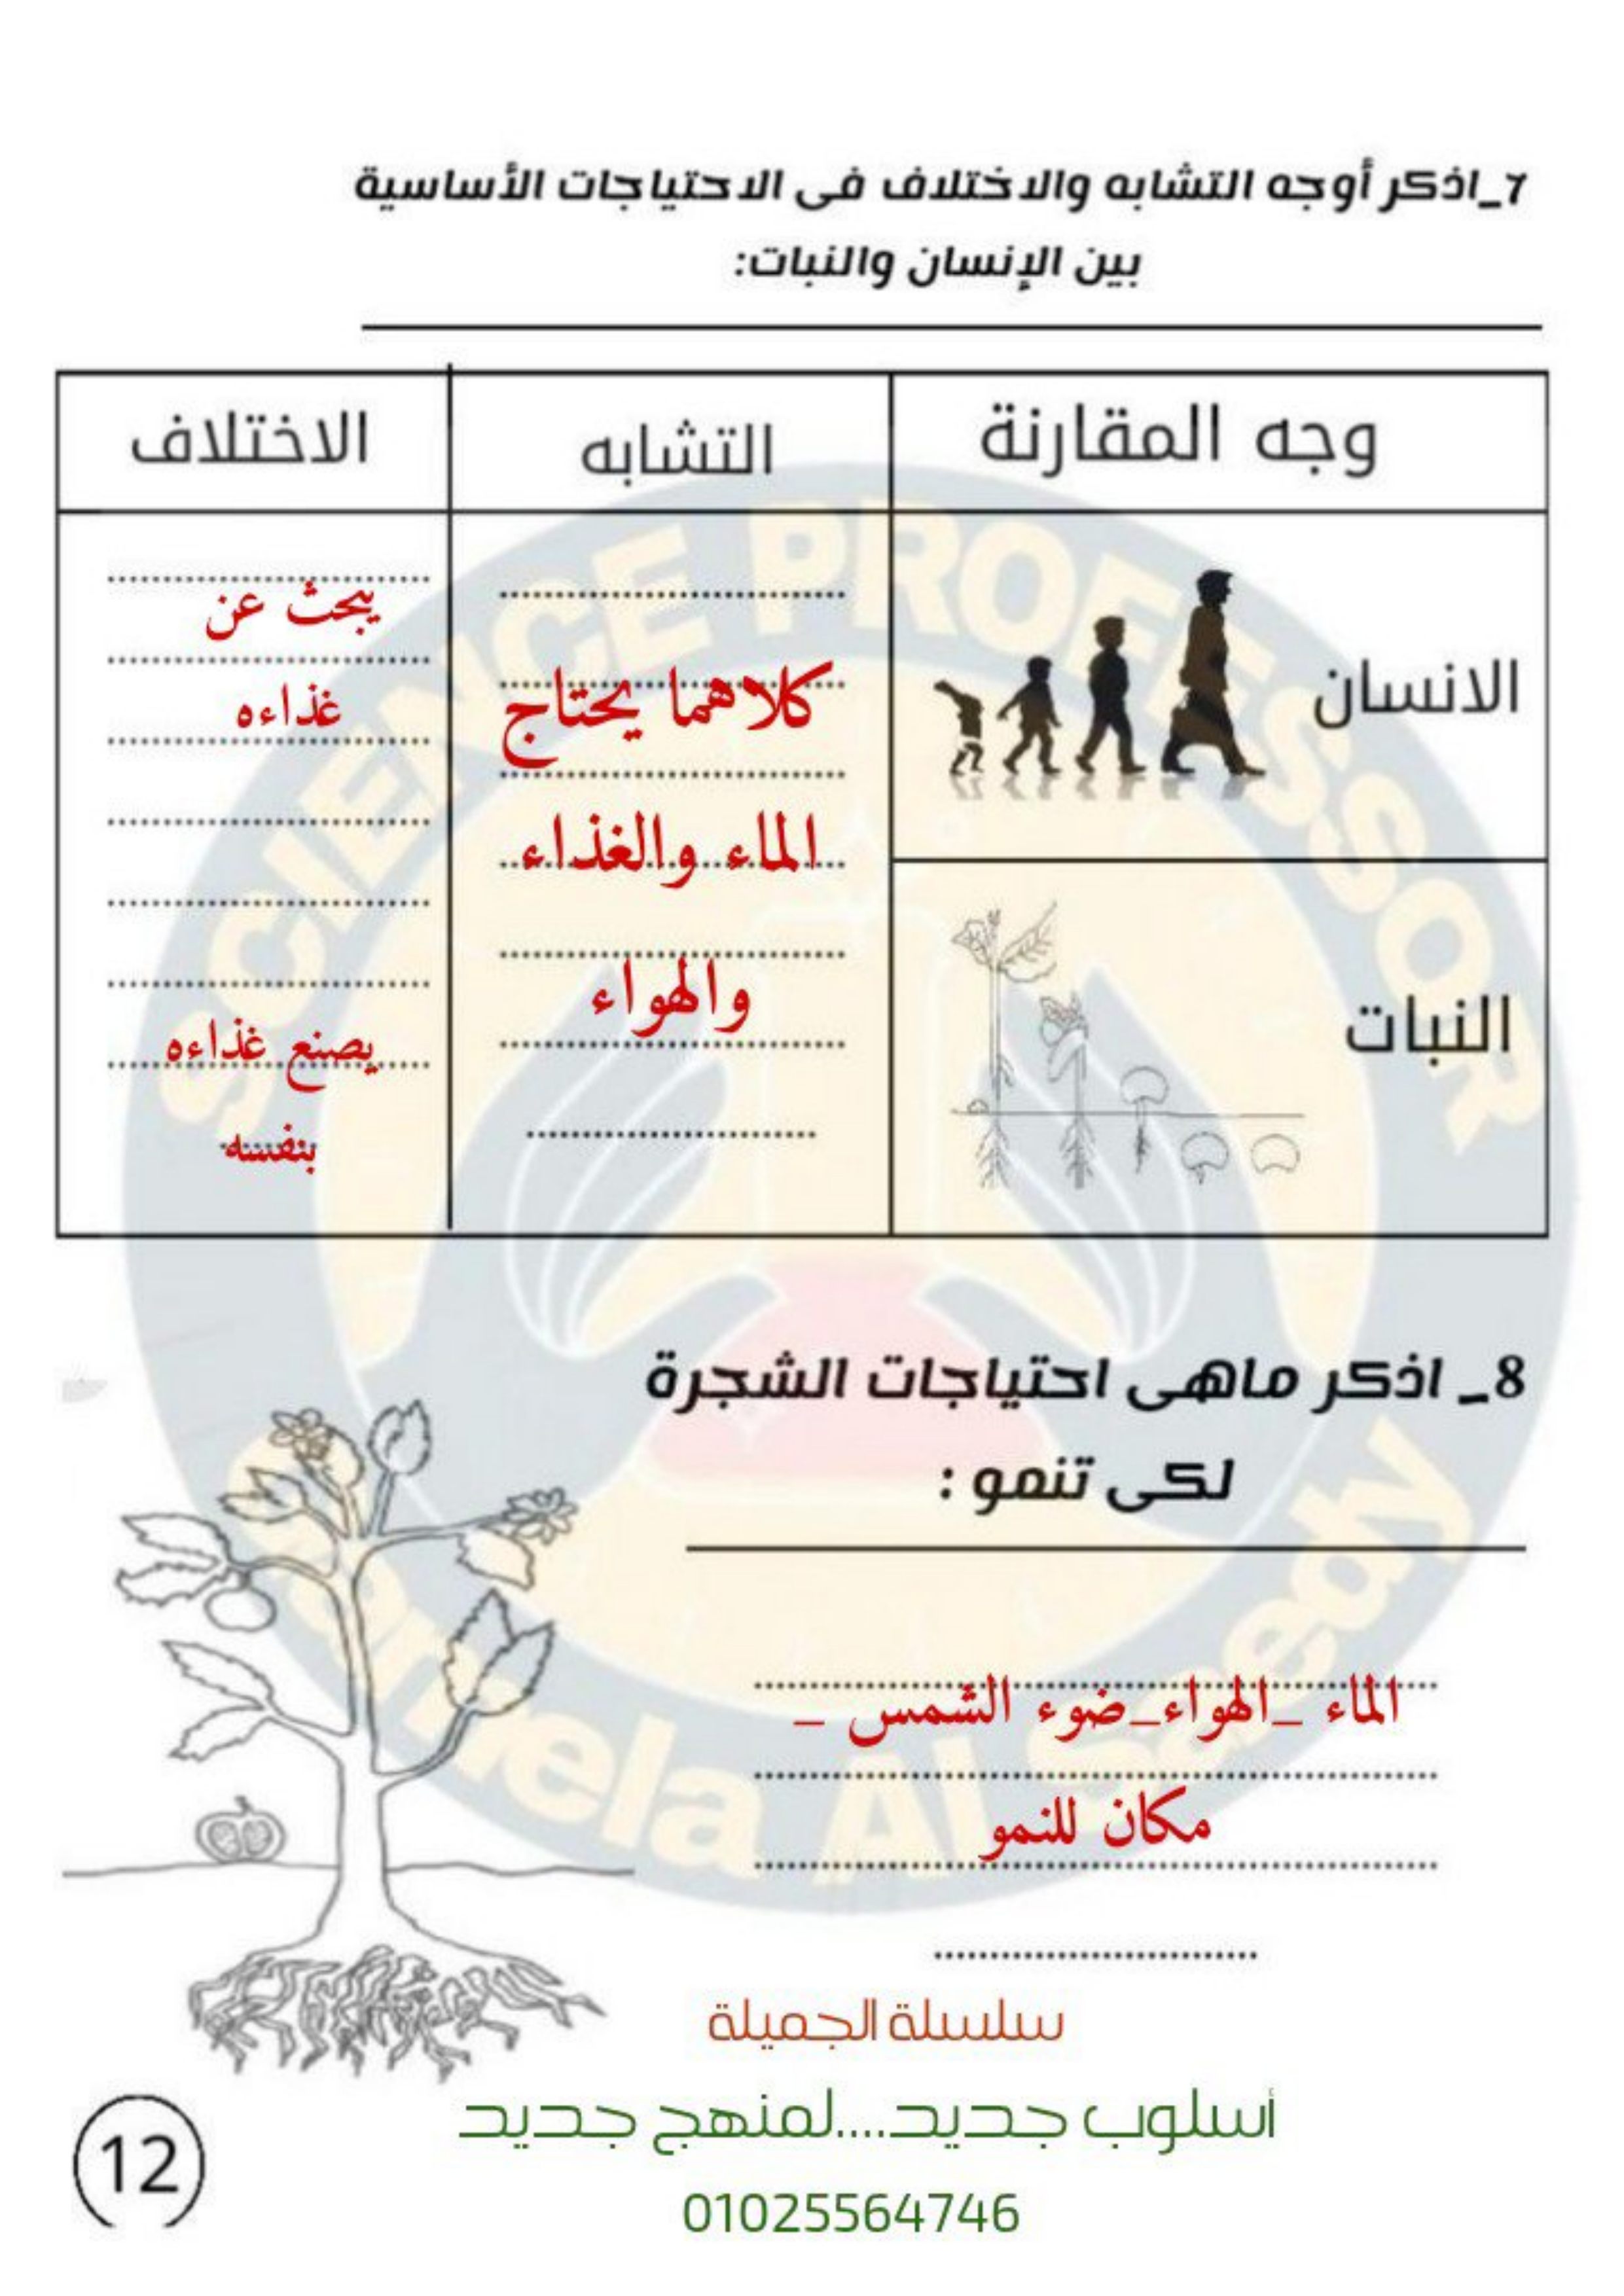 7_اذكر أوجه التشابه والاختلاف فى الاحتياجات الأساسية
بين الإنسان والنبات:
وجه المقارنة
التشابه
الاختلاف
الانسان
كلاهما يحتاج
الماء والغذاء
والهواء
يبحث عن
غذاءه
النبات
يصنع غذاءه
بنفسه
8_ اذكر ماهى احتياجات الشجرة
لكى تنمو :
الماء _الهواء_ضوء الشمس _
مكان للنمو
سلسلة الجميلة
أسلوب جديد....لمنهج جديد
01025564746
12
SCIENCE PROFESSOR
Al Saedy